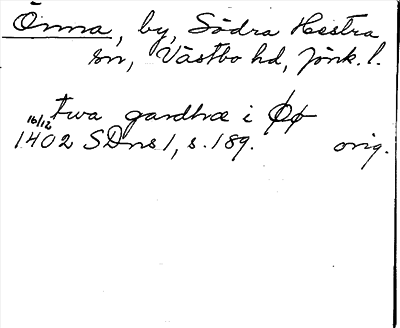 Önna, by, Södra Hestra
sn, Västbo hd, Jönk. l.
twa gardhæ i Øø
16/12 1402 SDns 1, s. 189. orig.